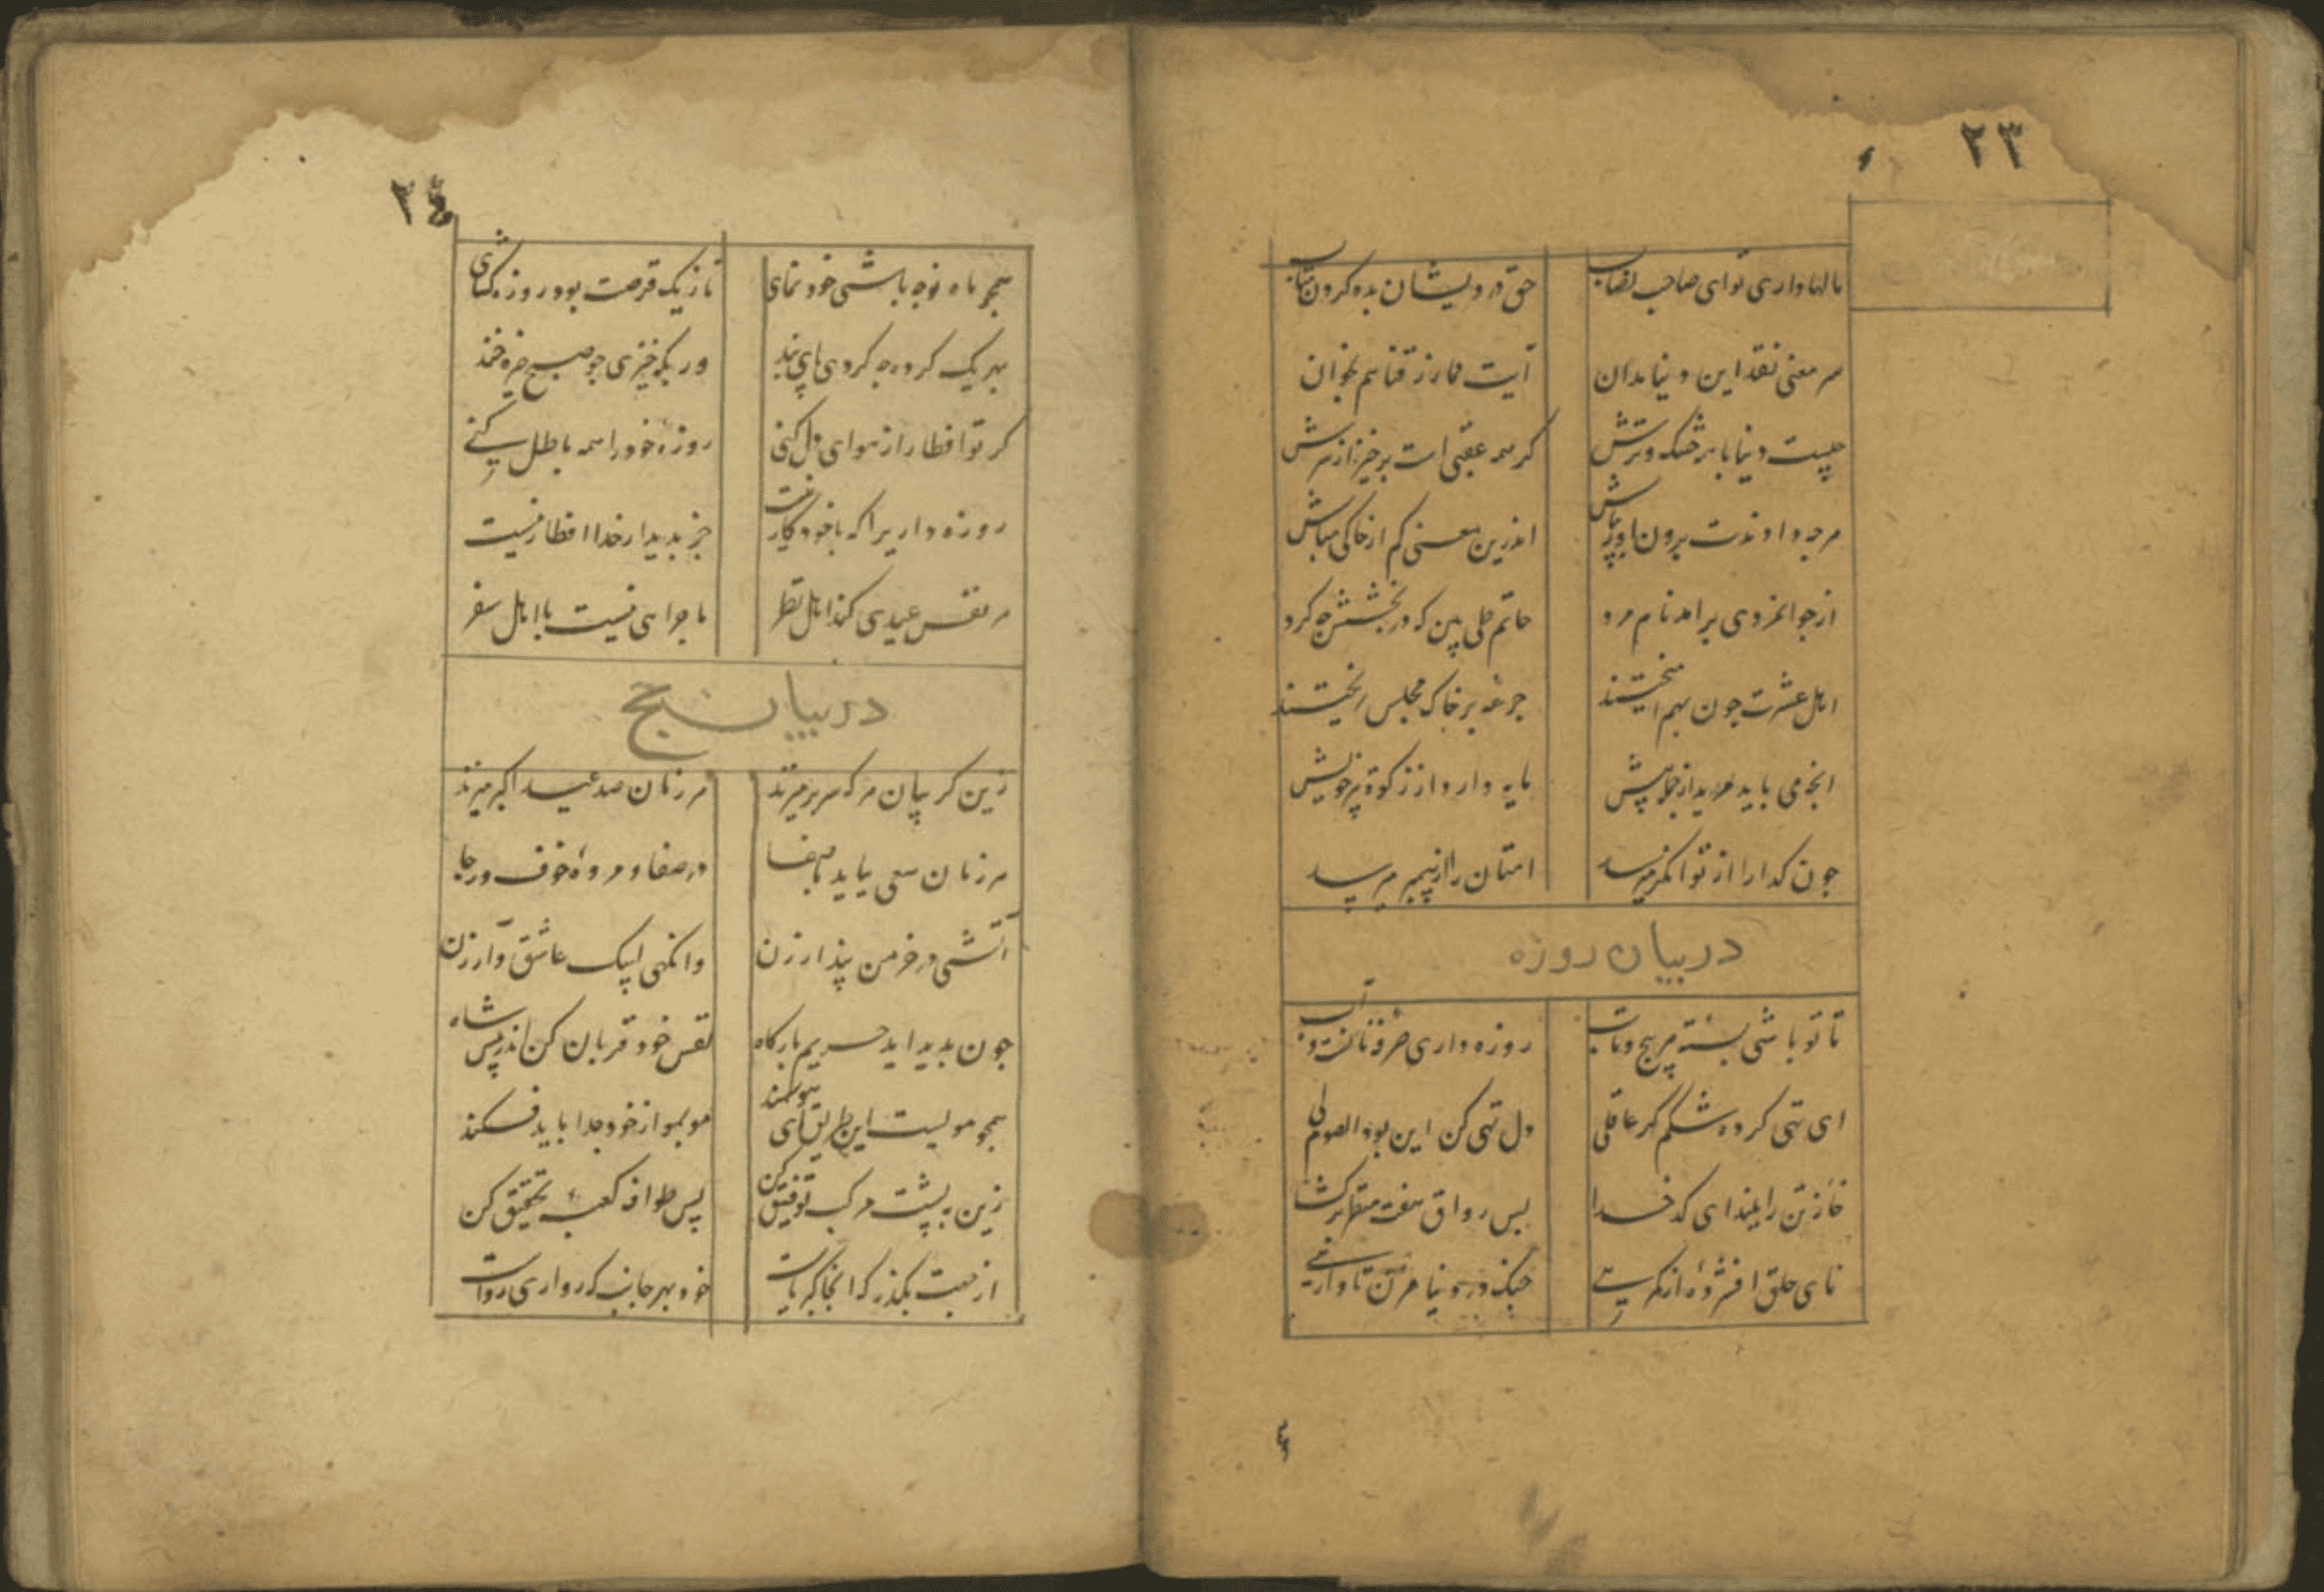 ٢٣
مالها داری تو ای صاحب نصاب
حق درویشان بده کردن متاب
سر معنی نقد این دنیا بدان
آیت مما رزقناهم بخوان
چیست دنیا با هر خشک و ترش
کر سر عقبی است برخیز از سرش
هرچه دادندت برون باش
اندرین معنی کم از خاکی مباش
از جوانمردی برامد نام مرد
حاتم طی بین که در بخشش چه کرد
اهل عشرت جون بهم امیختند
جرعه بر خاک مجلس ریختند
انچه می باید مرید از جمله پیش
مایه دارد از زکوة پیر خویش
جون کدا را از توانکر میرسد
امتان را از پیمبر میرسد
در بیان روزه
تا تو باشی بسته پر پیچ و تاب
روزه داری صرفه نانست و آب
ای تهی کرده شکم کر عاقلی
دل تهی کن این بود الصوم لی
خازن تن را ببند ای کدخدا
پس رواق هفت منظر برکشا
نای حلق افشرده از کریستی
جنک در دنیا مزن تا وارستی
٢٤
همجو ماه نو چه باشی خود نمای
تا زیک قرصت بود روزه کشای
بهر یک کرده چه کردی پای بند
ور یکه خیزی جو صبح خیره خند
کر تو افطار از هوای دل کنی
روزهٔ خود را همه باطل کنی
روزه داریرا که با خود کار نیست
جز بدیدار خدا افطار نیست
هر نفس عیدی کند اهل نظر
ماجرایی نیست با اهل سفر
در بیان حج
زین کریبان هر که سر بر میزند
هر زمان صد عید اکبر میزند
هر زمان سعی بباید با صفا
در صفا و مروهٔ خوف و رجا
آتشی در خرمن پندار زن
وانکهی لبیک عاشق وار زن
جون بدید اید حریم بارکاه
نفس خود قربان کن اندر پیش شاه
همجو مویست این طریق ای هوشمند
موبمو از خود جدا باید فکند
زین به پشت مرکب توفیق کن
پس طواف کعبهٔ تحقیق کن
از جهت بکذر که انجا کبریاست
خود بهر جانب که رو اری رواست